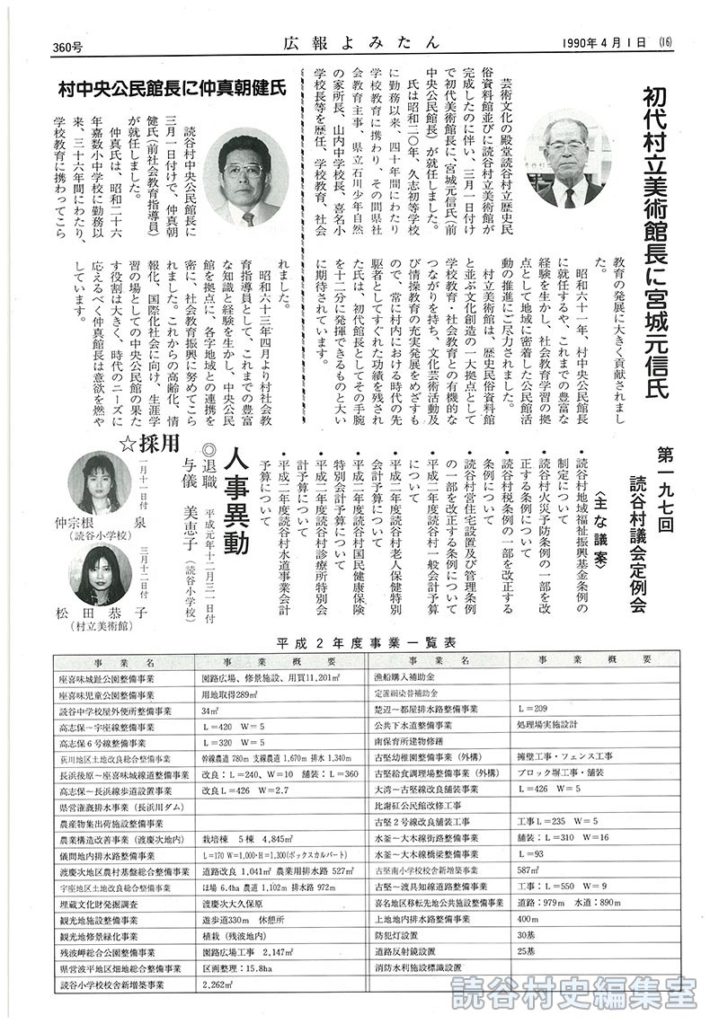 360号
広報よみたん
1990年4月1日
(16)
初代村立美術館長に宮城元信氏
芸術文化の殿堂読谷村立歴史民
俗資料館並びに読谷村立美術館が
完成したのに伴い、三月一日付け
で初代美術館長に、宮城元信氏(前
中央公民館長)が就任しました。
氏は昭和二〇年、久志初等学校
に勤務以来、四十年間にわたり
学校教育に携わり、その間県社
会教育主事、県立石川少年自然
の家所長、山内中学校長、喜名小
学校長等を歴任、学校教育、社会
教育の発展に大きく貢献されまし
た。
昭和六十一年、村中央公民館長
に就任するや、これまでの豊富な
経験を生かし、社会教育学習の拠
点として地域に密着した公民館活
動の推進にご尽力されました。
村立美術館は、歴史民俗資料館
と並ぶ文化創造の一大拠点として
学校教育・社会教育との有機的な
つながりを持ち、文化芸術活動及
び情操教育の充実発展をめざすも
ので、常に村内における時代の先
駆者としてすぐれた功績を残され
た氏は、初代館長としてその手腕
を十二分に発揮できるものと大い
に期待されています。
村中央公民館長に仲真朝健氏
読谷村中央公民館長に
三月一日付けで、仲真朝
健氏(前社会教育指導員)
が就任しました。
仲真氏は、昭和二十六
年嘉数小中学校に勤務以
来、三十六年間にわたり、
学校教育に携わってこら
れました。
昭和六十三年四月より村社会教
育指導員として、これまでの豊富
な知識と経験を生かし、中央公民
館を拠点に、各字地域との連携を
密に、社会教育振興に努めてこら
れました。これからの高齢化、情
報化、国際化社会に向け、生涯学
習の場としての中央公民館の果た
す役割は大きく、時代のニーズに
応えるべく仲真館長は意欲を燃や
しています。
第一九七回
読谷村議会定例会
〈主な議案〉
・読谷村地域福祉振興基金条例の
制定について
・読谷村火災予防条例の一部を改
正する条例について
・読谷村税条例の一部を改正する
条例について
・読谷村営住宅設置及び管理条例
の一部を改正する条例について
・平成二年度読谷村一般会計予算
について
・平成二年度読谷村老人保健特別
会計予算について
・平成二年度読谷村国民健康保険
特別会計予算について
・平成二年度読谷村診療所特別会
計予算について
・平成二年度読谷村水道事業会計
予算について
人事異動
◎退職 平成元年十二月三一日付
与儀 美恵子(読谷小学校)
☆採用
一月十一日付
仲宗根 泉
(読谷小学校)
三月十二日付
松田恭子
(村立美術館)
平成2年度事業一覧表
事業名 事業概要 事業名 事業概要
座喜味城趾公園整備事業 園路広場、修景施設、用買11,201㎡ 漁船購入補助金
座喜味児童公園整備事業 用地取得289㎡ 定置網染替補助金
読谷中学校屋外便所整備事業 34㎡ 楚辺~都屋排水路整備事業 L=209
高志保~宇座線整備事業 L=420 W=5 公共下水道整備事業 処理場実施設計
高志保6号線整備事業 L=320 W=5 南保育所建物修繕
荻川地区土地改良総合整備事業 幹線農道 780m 支線農道 1,670m 排水 1,340m 古堅幼稚園整備事業(外構) 擁壁工事・フェンス工事
長浜後原~座喜味城線道整備事業 改良:L=240、W=10 舗装:L=360 古堅給食調理場整備事業(外構) ブロック塀工事・舗装
高志保~長浜線歩道設置事業 改良L=426 W=2.7 大湾~古堅線改良舗装工事 L=426 W=5
県営潅漑排水事業(長浜川ダム) 比謝矼公民館改修工事
農産物集出荷施設整備事業 古堅2号線改良舗装工事 工事L=235 W=5
農業構造改善事業(渡慶次地内) 栽培棟 5棟 4,845㎡ 水釜~大木線街路整備事業 舗装:L=310 W=16
儀間地内排水路整備事業 L=170 W=1,000・H=1,300(ボックスカルバート) 水釜~大木線橋梁整備事業 L=93
渡慶次地区農村基盤総合整備事業 道路改良 1,041㎡ 農業用排水路 527㎡ 古堅南小学校校舎新増築事業 587㎡
宇座地区土地改良総合整備事業 ほ場 6.4ha 農道 1,102m 排水路 972m 古堅~渡具知線道路整備事業 工事:L=550 W=9
埋蔵文化財発掘調査 渡慶次大久保原 喜名地区移転先地公共施設整備事業 道路:979m 水道:890m
観光地施設整備事業 遊歩道330m 休憩所 上地地内排水路整備事業 400m
観光地修景緑化事業 植栽(残波地内) 防犯灯設置 30基
残波岬総合公園整備事業 園路広場工事 2,147㎡ 道路反射鏡設置 25基
県営波平地区畑地総合整備事業 区画整理:15.8ha 消防水利施設標識設置
読谷小学校校舎新増築事業 2,262㎡
読谷村史編集室